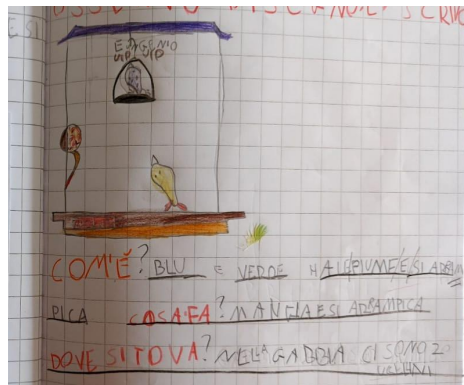 OSSERVO DISEGNO E SCRIVO
ESI
EUGENIO
VIP VIP
COM'È? BLU E VERDE HA LE PIUME E SI ARRAM
PICA COSA FA? MANGIA E SI ARRAMPICA
DOVE SI TOVA? NELLA GABBIA CI SONO 20